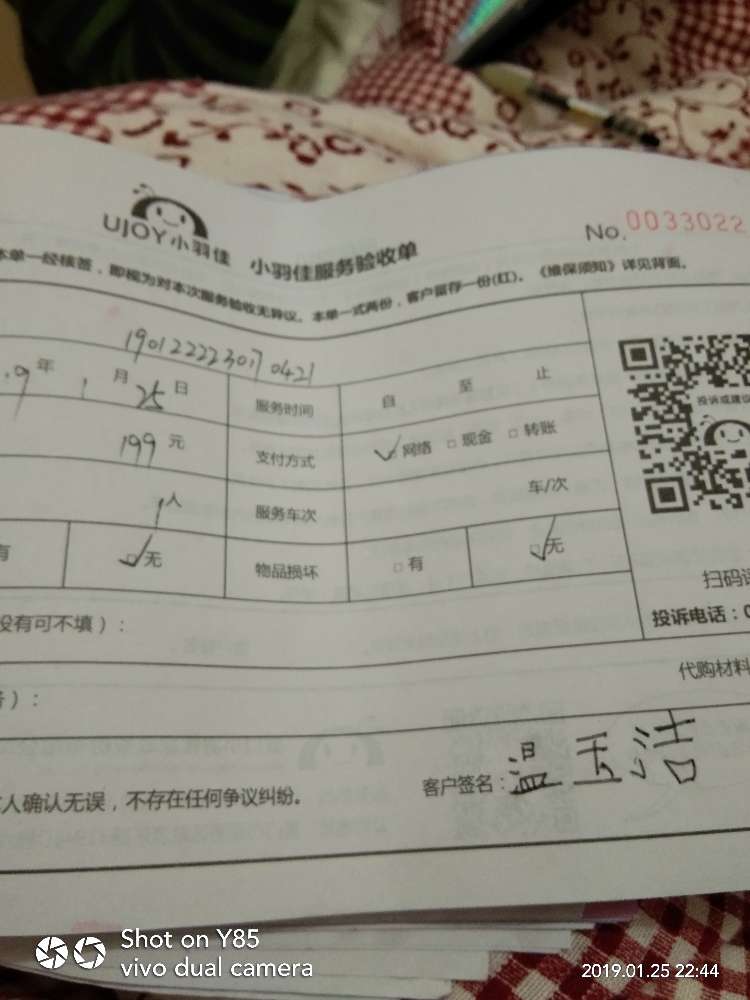 UJOY小羽佳 小羽佳服务验收单 No.0033022
本单一经核签，即视为对本次服务验收无异议。本单一式两份，客户留存一份(红)。《维保须知》详见背面。
9年1月25日 服务时间 自 至 止
199元 支付方式 ✓网络 □现金 □转账
1人 服务车次 车/次
有 ☑无 物品损坏 □有 ☑无
投诉或建议
扫码
没有可不填）：
投诉电话：0
代购材料
）：
人确认无误，不存在任何争议纠纷。 客户签名：温玉洁
Shot on Y85
vivo dual camera
2019.01.25 22:44